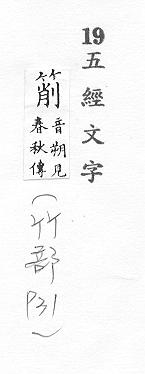 19
五經文字
箾
音朔見
春秋傳
(竹部P31)